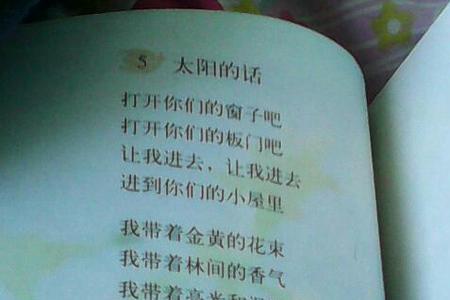 5 太阳的话
打开你们的窗子吧
打开你们的板门吧
让我进去，让我进去
进到你们的小屋里
我带着金黄的花束
我带着林间的香气
我带着亮光和